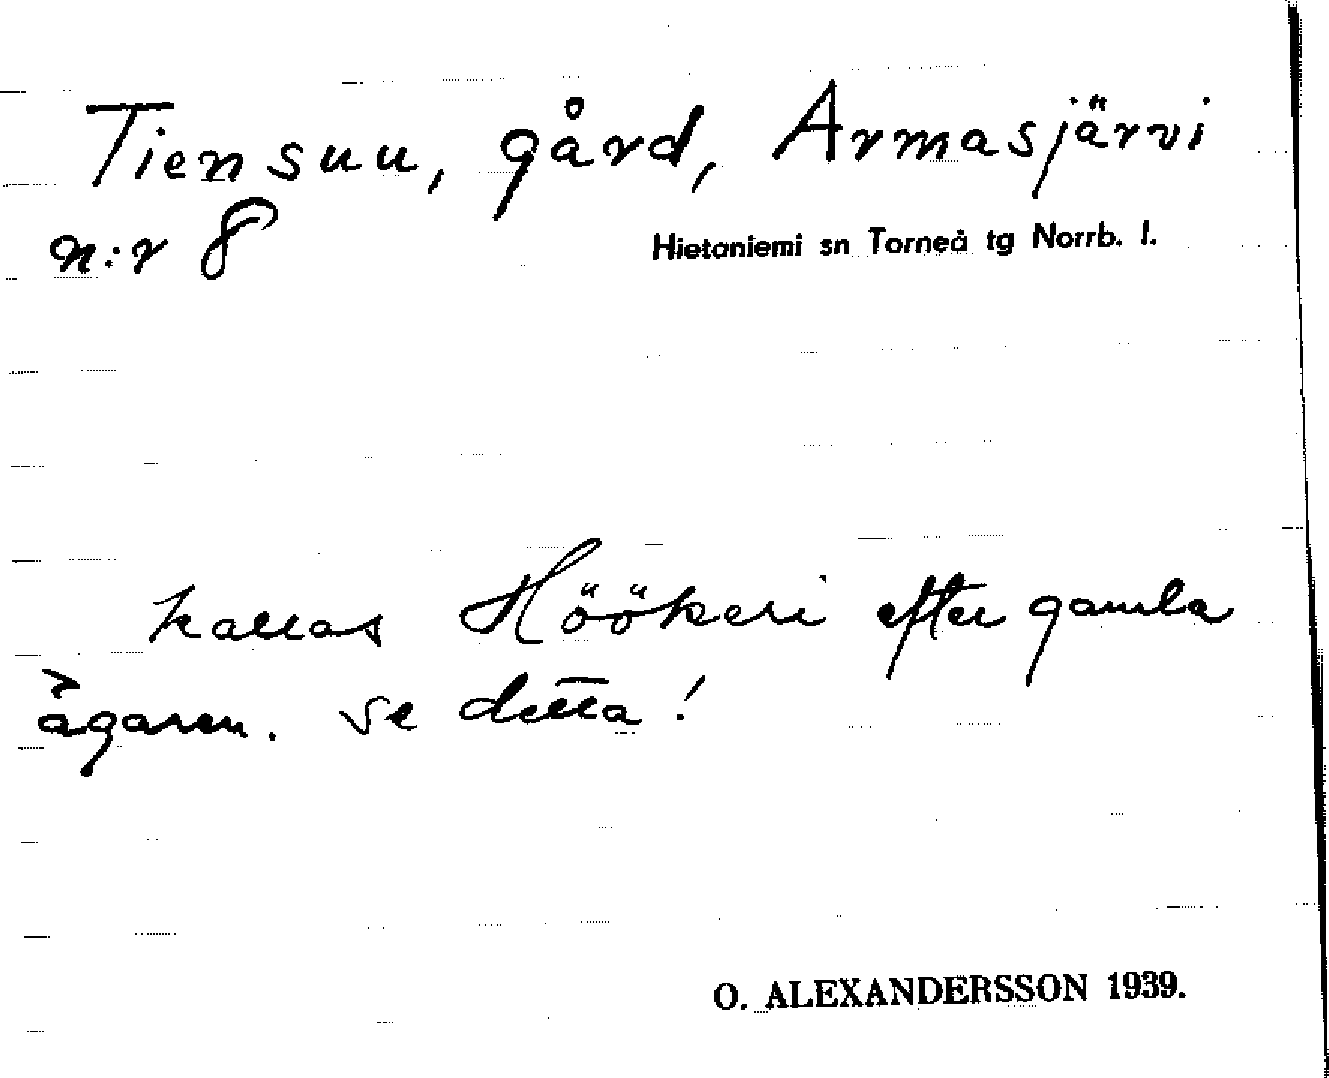 Tiensuu, gård, Armasjärvi
n:r 8
Hietaniemi sn Torneå tg Norrb. l.
kallas Höökeri efter gamla
ägaren. Se detta!
O. ALEXANDERSSON 1939.